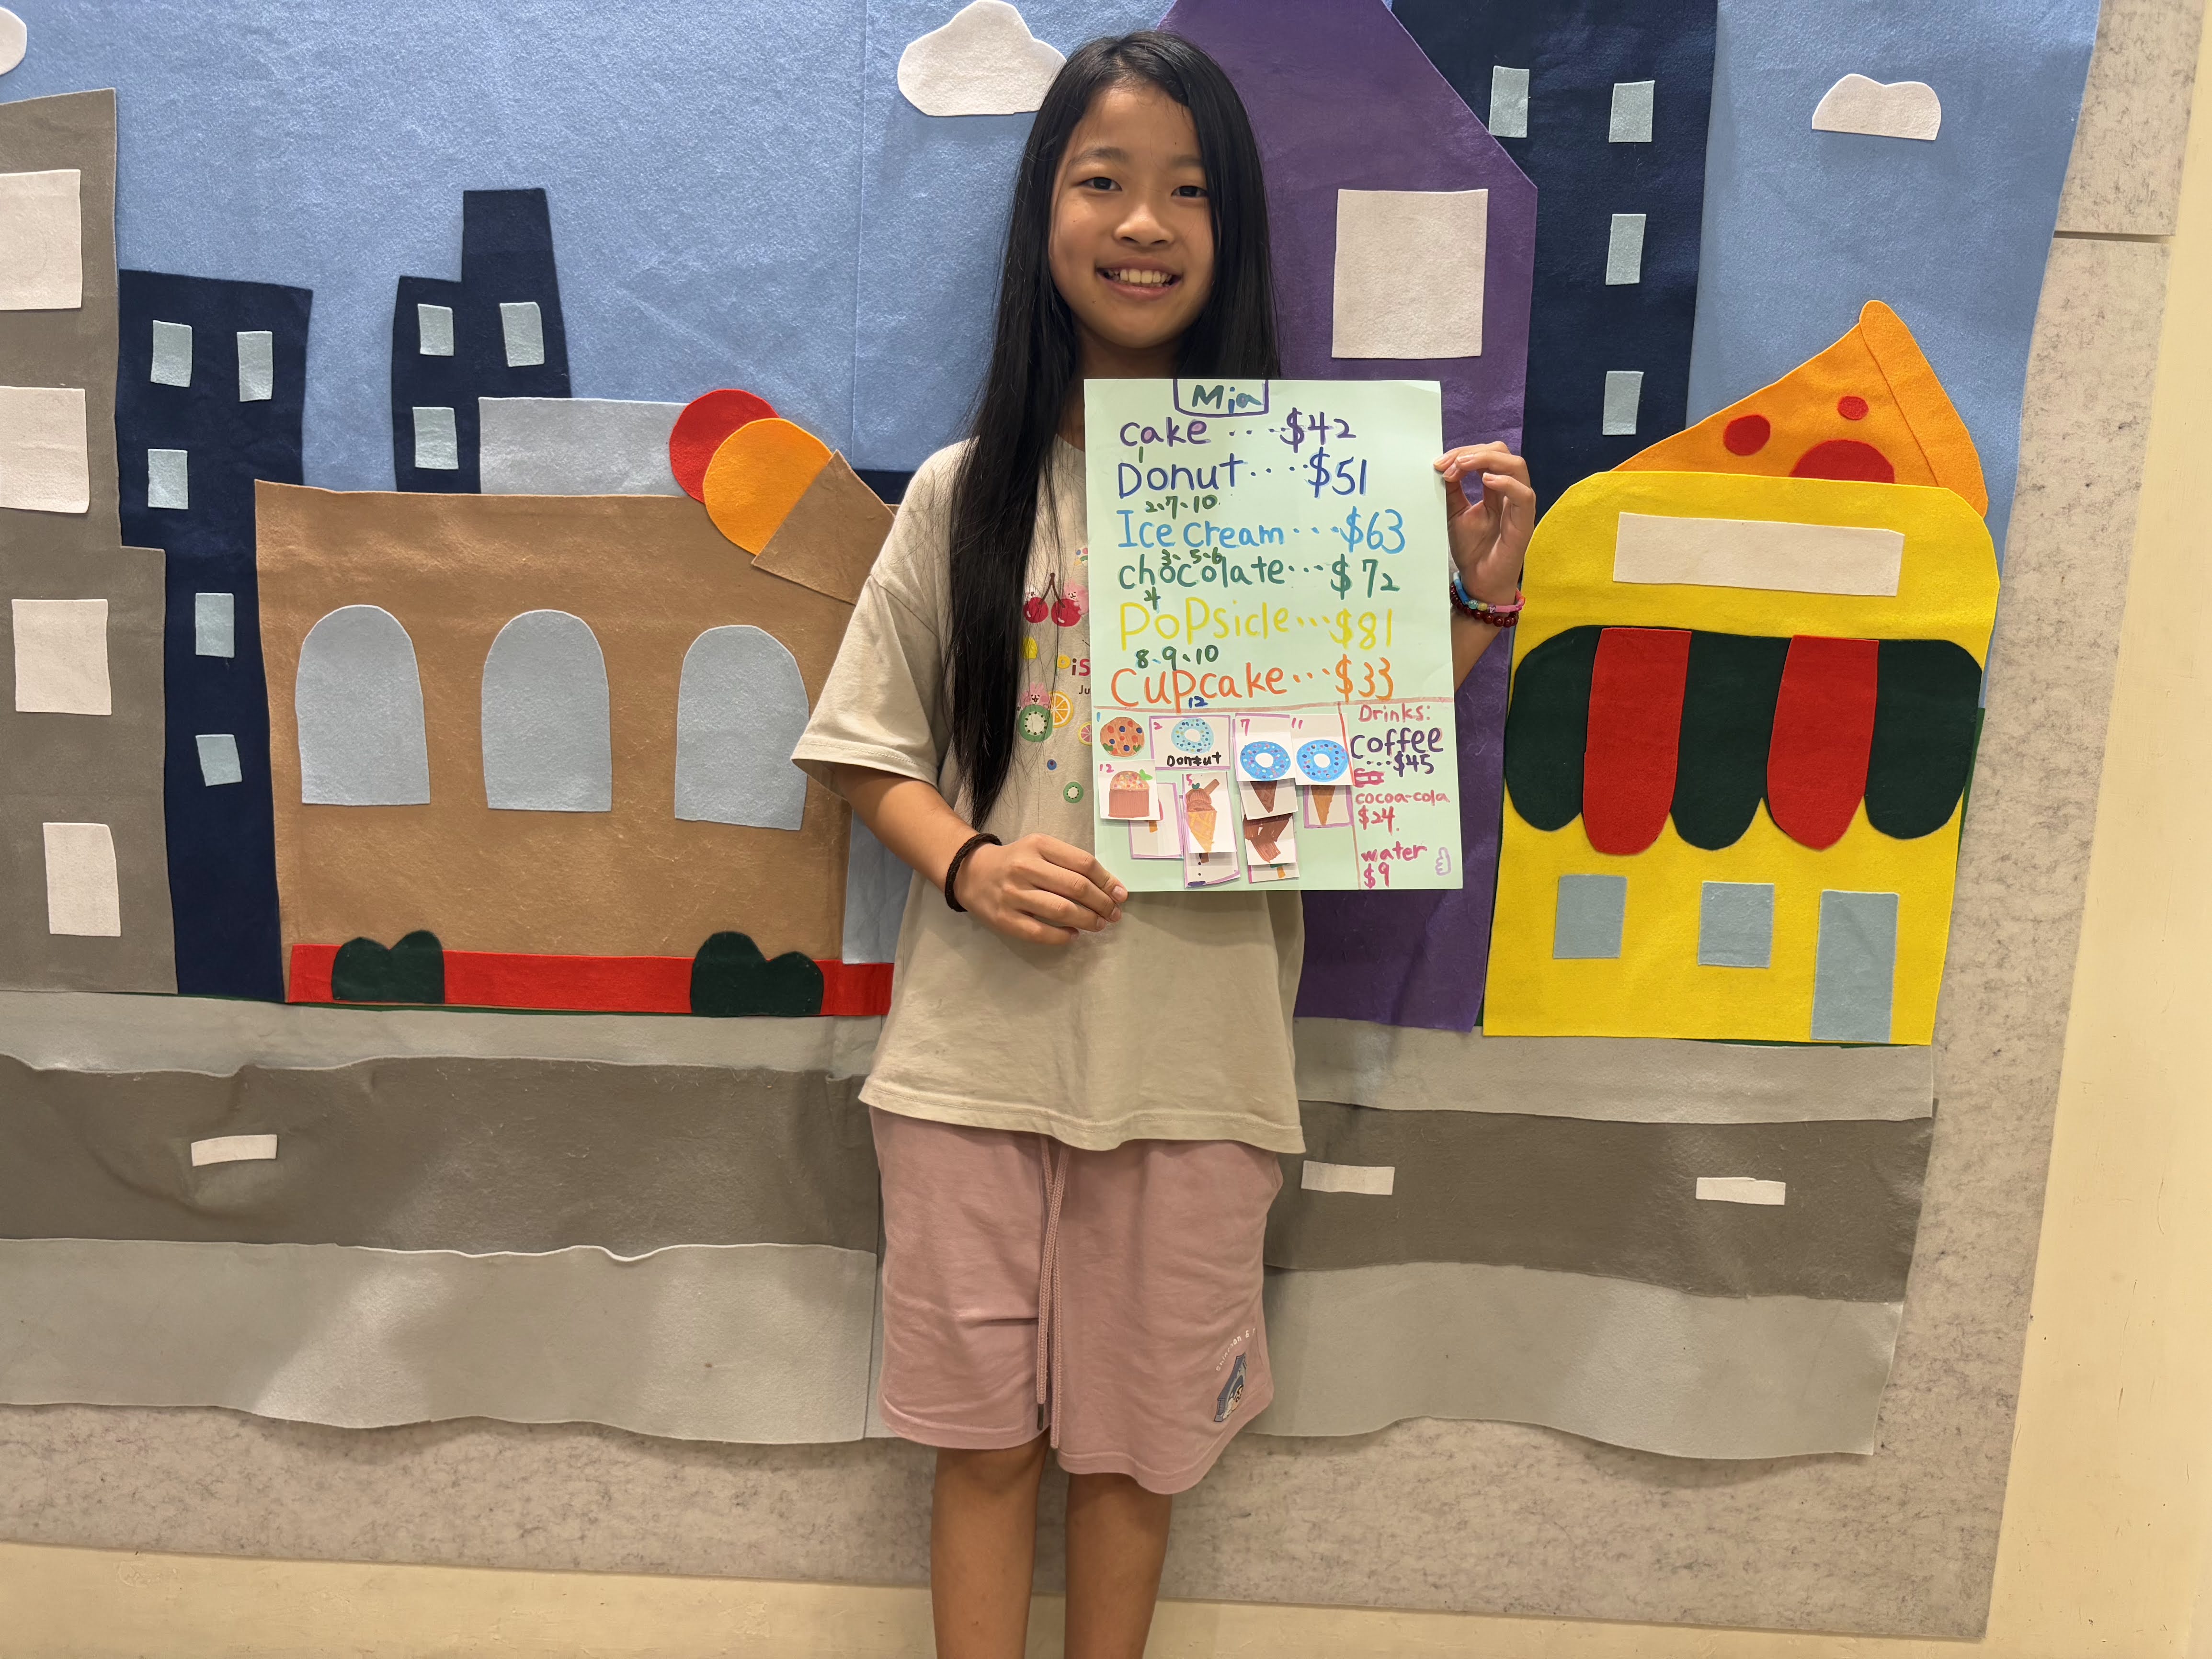 Mia
cake ....$42
1
Donut....$51
2.7.10
Ice cream...$63
3.5.6
chocolate...$72
4
Popsicle...$81
8.9.10
Cupcake...$33
12
1
2
Donut
7
11
12
5
Drinks:
coffee
...$45
cocoa-cola
$24.
water
$9
iS
Ju